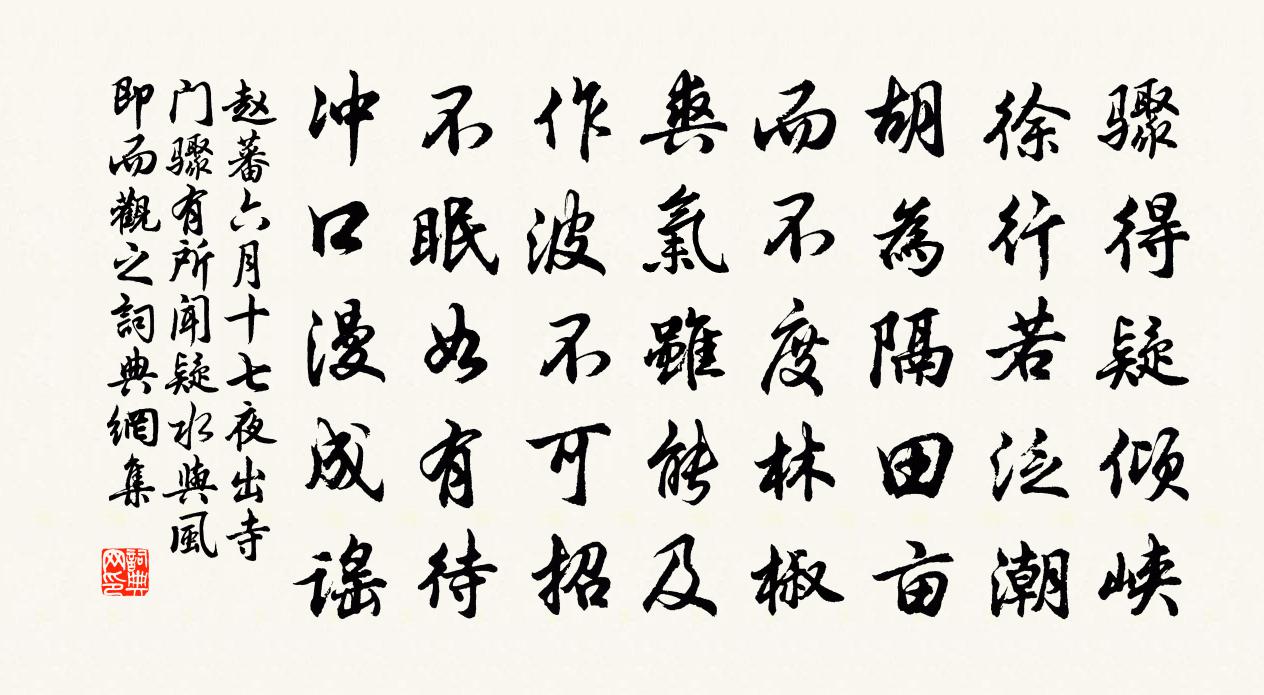 骤得疑倾峡
徐行若泛潮
胡為隔田亩
而不度林椒
爽氣雖能及
作波不可招
不眠如有待
冲口漫成谣
赵蕃六月十七夜出寺
门骤有所闻疑水與風
即而觀之詞典網集
詞典
网印